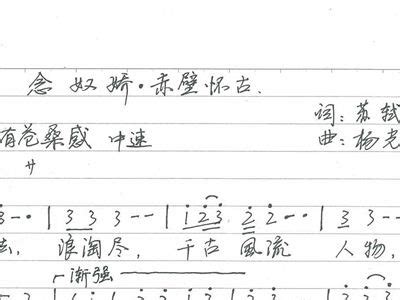 念奴娇·赤壁怀古.
词:苏轼
有苍桑感 中速
曲:杨
サ
3·· | 3 3 3·-- | 1 2 3 2 2·-- | 3 3··
去, 浪淘尽, 千古风流 人物,
渐强